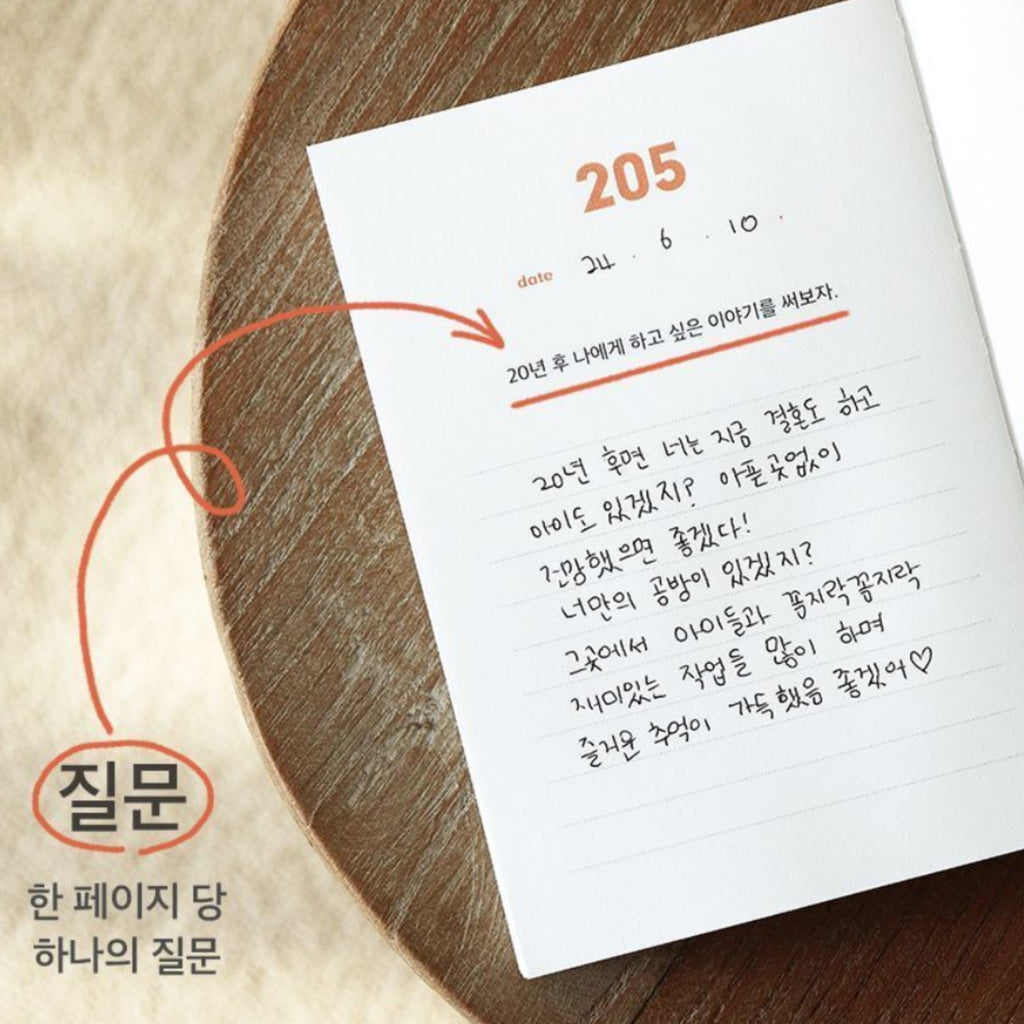 205
date 24 . 6 . 10 .
20년 후 나에게 하고 싶은 이야기를 써보자.
20년 후면 너는 지금 결혼도 하고
아이도 있겠지? 아픈곳없이
건강했으면 좋겠다!
너만의 공방이 있겠지?
그곳에서 아이들과 꼼지락꼼지락
재미있는 작업들 많이 하며
즐거운 추억이 가득했음 좋겠어♡
질문
한 페이지 당
하나의 질문